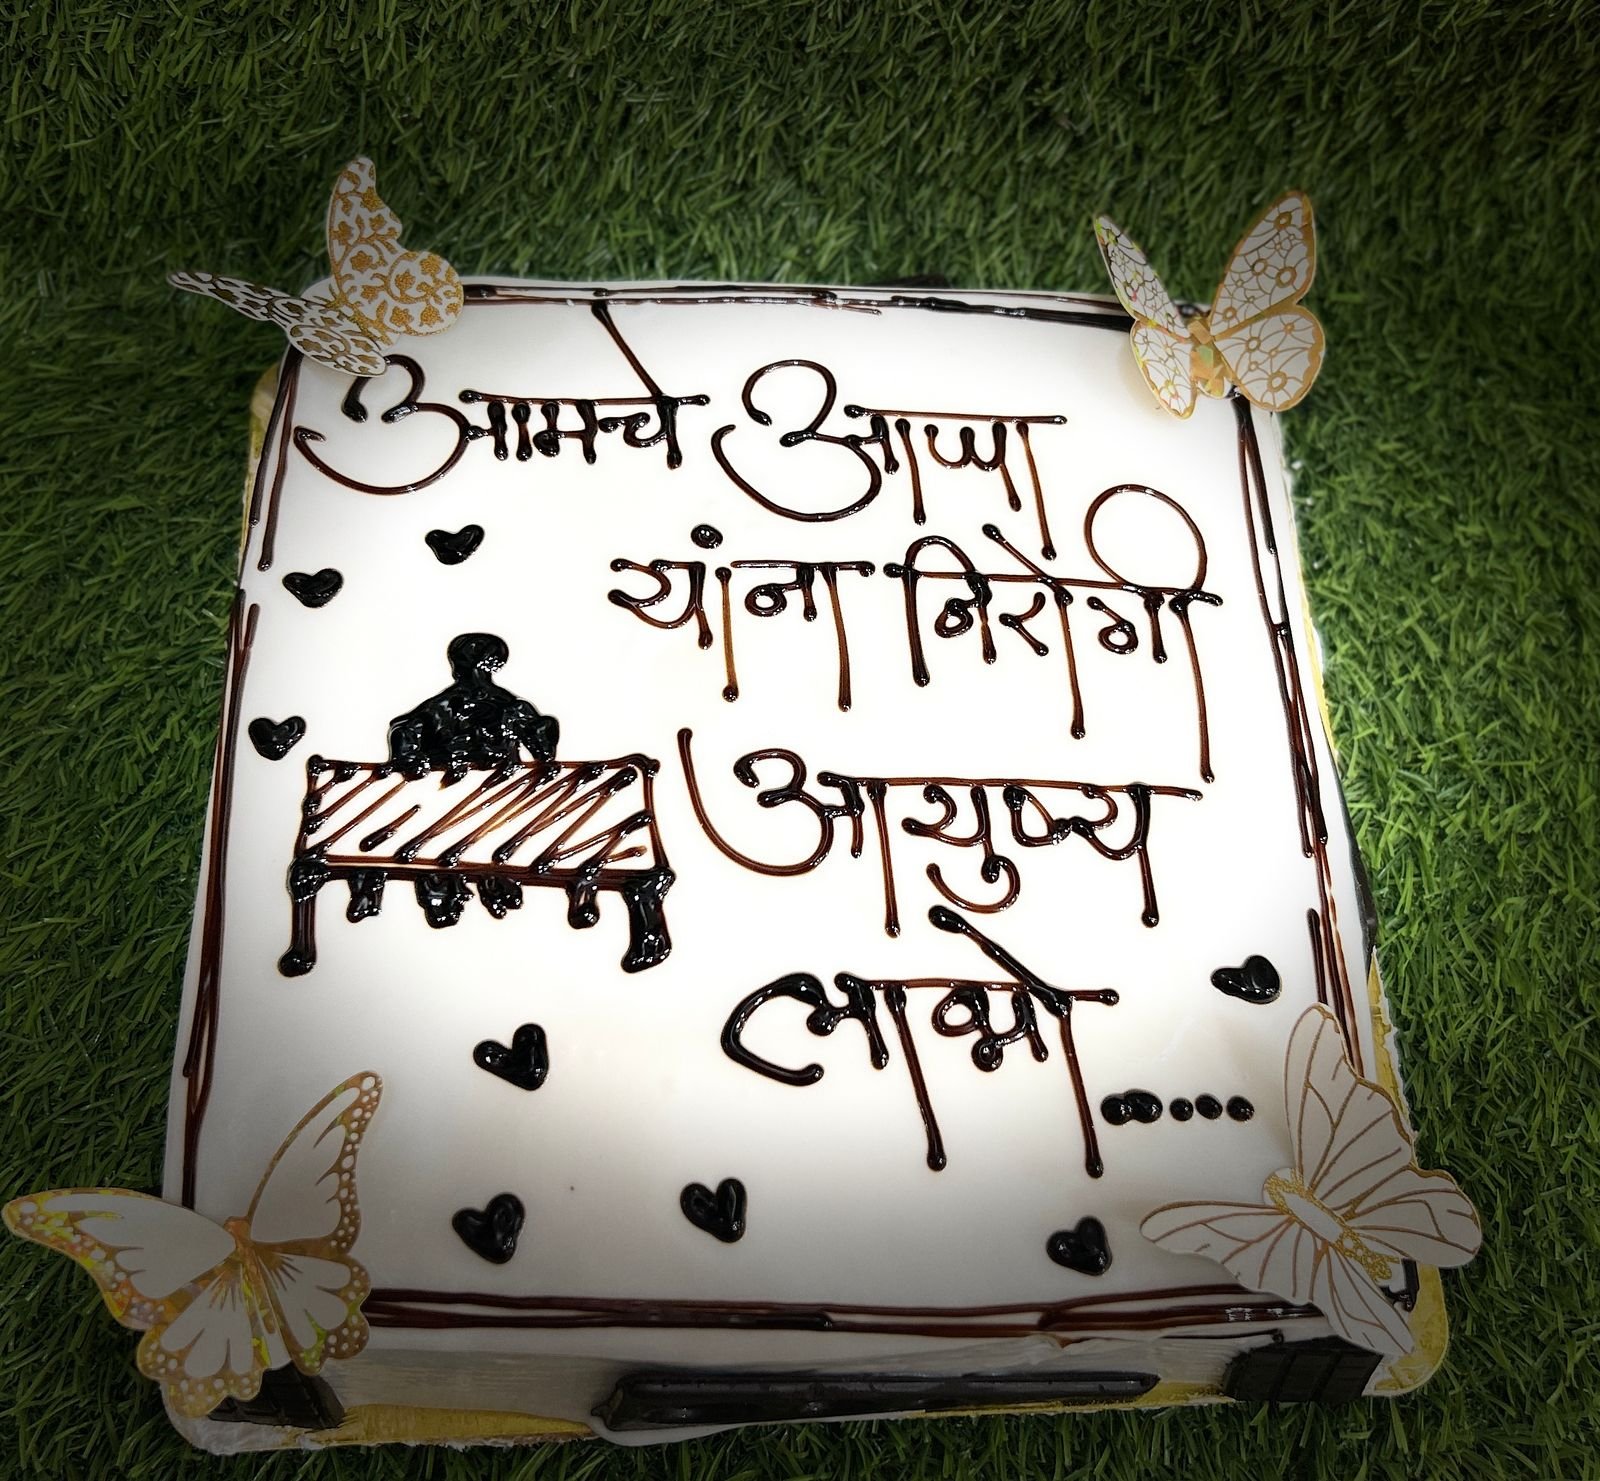 आमचे आप्पा
यांना निरोगी
आयुष्य
लाभो .....